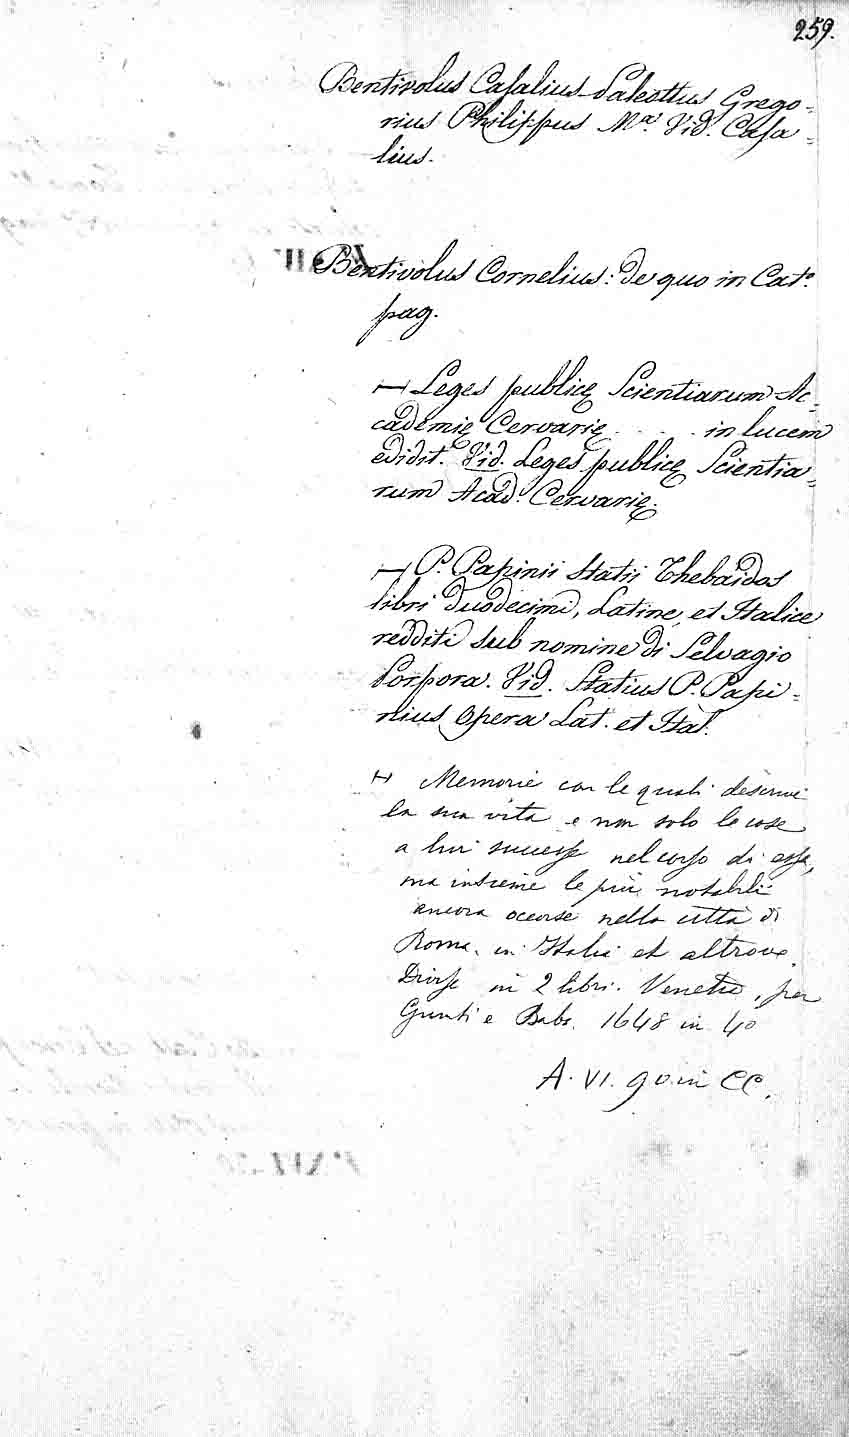 259.
Bentivolus Casalius Paleottus Grego=
rius Philippus Mª. Vid. Casa=
lius.
Bentivolus Cornelius: de quo in Cat.º
pag.
— Leges publicę Scientiarum Ac=
cademię Cervarię . . . . in lucem
edidit. Vid. Leges publicę Scientia=
rum Acad. Cervarię.
— P. Papinii Statii Thebaidos
libri duodecim, Latine, et Italice
redditi sub nomine di Selvagio
Porpora. Vid. Statius P. Papi=
nius Opera Lat. et Ital.
— Memorie con le quali descrive
la sua vita e non solo le cose
a lui successe nel corso di essa,
ma insieme le più notabili
ancora occorse nella città di
Roma, in Italia et altrove.
Divise in 2 libri. Venetia, per
Giunti e Baba. 1648 in 4º
A. VI. 90. in CC.